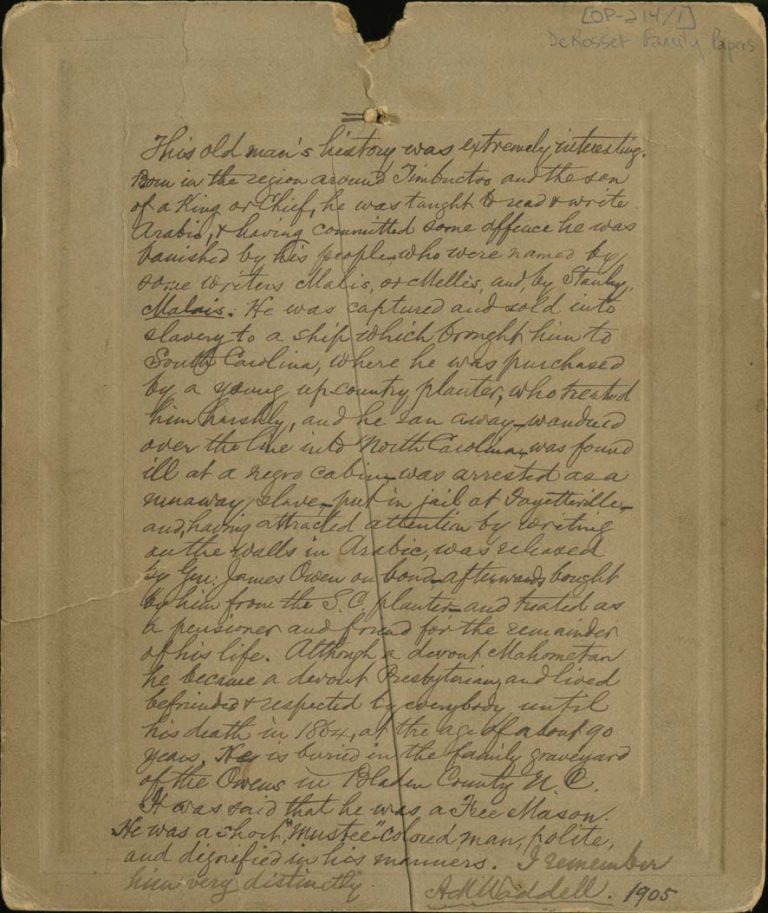 [OP-214/1]
DeRosset Family Papers
This old man's history was extremely interesting.
Born in the region around Timbuctoo and the son
of a King or Chief, he was taught to read & write
Arabic, & having committed some offence he was
banished by his people who were named by
some writers Malis, or Mellis, and, by Stanley,
Malais. He was captured and sold into
slavery to a ship which brought him to
South Carolina, where he was purchased
by a young up-country planter, who treated
him harshly, and he ran away - wandered
over the line into North Carolina - was found
ill at a negro cabin - was arrested as a
runaway slave - put in jail at Fayetteville -
and, having attracted attention by writing
on the walls in Arabic, was released
by Gen: James Owen on bond - afterwards bought
by him from the S.C. planter - and treated as
a pensioner and friend for the remainder
of his life. Although a devout Mahometan
he became a devout Presbyterian, and lived
befriended & respected by everybody until
his death in 1864, at the age of about 90
years. He is buried in the family graveyard
of the Owens in Bladen County N.C.
It was said that he was a Free Mason.
He was a short, "Mustee" colored man, polite,
and dignified in his manners. I remember
him very distinctly.
AMWaddell. 1905